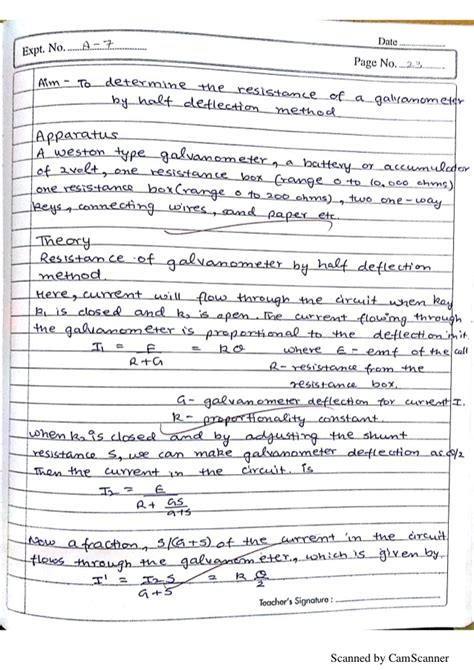 Expt. No. A-7
Date
Page No. 23
Aim - To determine the resistance of a galvanometer
by half deflection method
Apparatus
A weston type galvanometer, a battery or accumulator
of 2volt, one resistance box (range 0 to 10,000 ohms)
one resistance box (range 0 to 200 ohms), two one-way
keys, connecting wires, sand paper etc.
Theory
Resistance of galvanometer by half deflection
method.
Here, current will flow through the circuit when key
K₁ is closed and K₂ is open. The current flowing through
the galvanometer is proportional to the deflection in it.
I₁ = E/(R+G) = Kθ where E - emf of the cell
R - resistance from the
resistance box.
G - galvanometer deflection for current I.
K - proportionality constant.
When K₂ is closed and by adjusting the shunt
resistance S, we can make galvanometer deflection as θ/2
Then the current in the circuit. is
I₂ = E/(R + GS/(G+S))
Now a fraction, S/(G+S) of the current in the circuit
flows through the galvanometer, which is given by.
I' = I₂S/(G+S) = K θ/2
Teacher's Signature :
Scanned by CamScanner